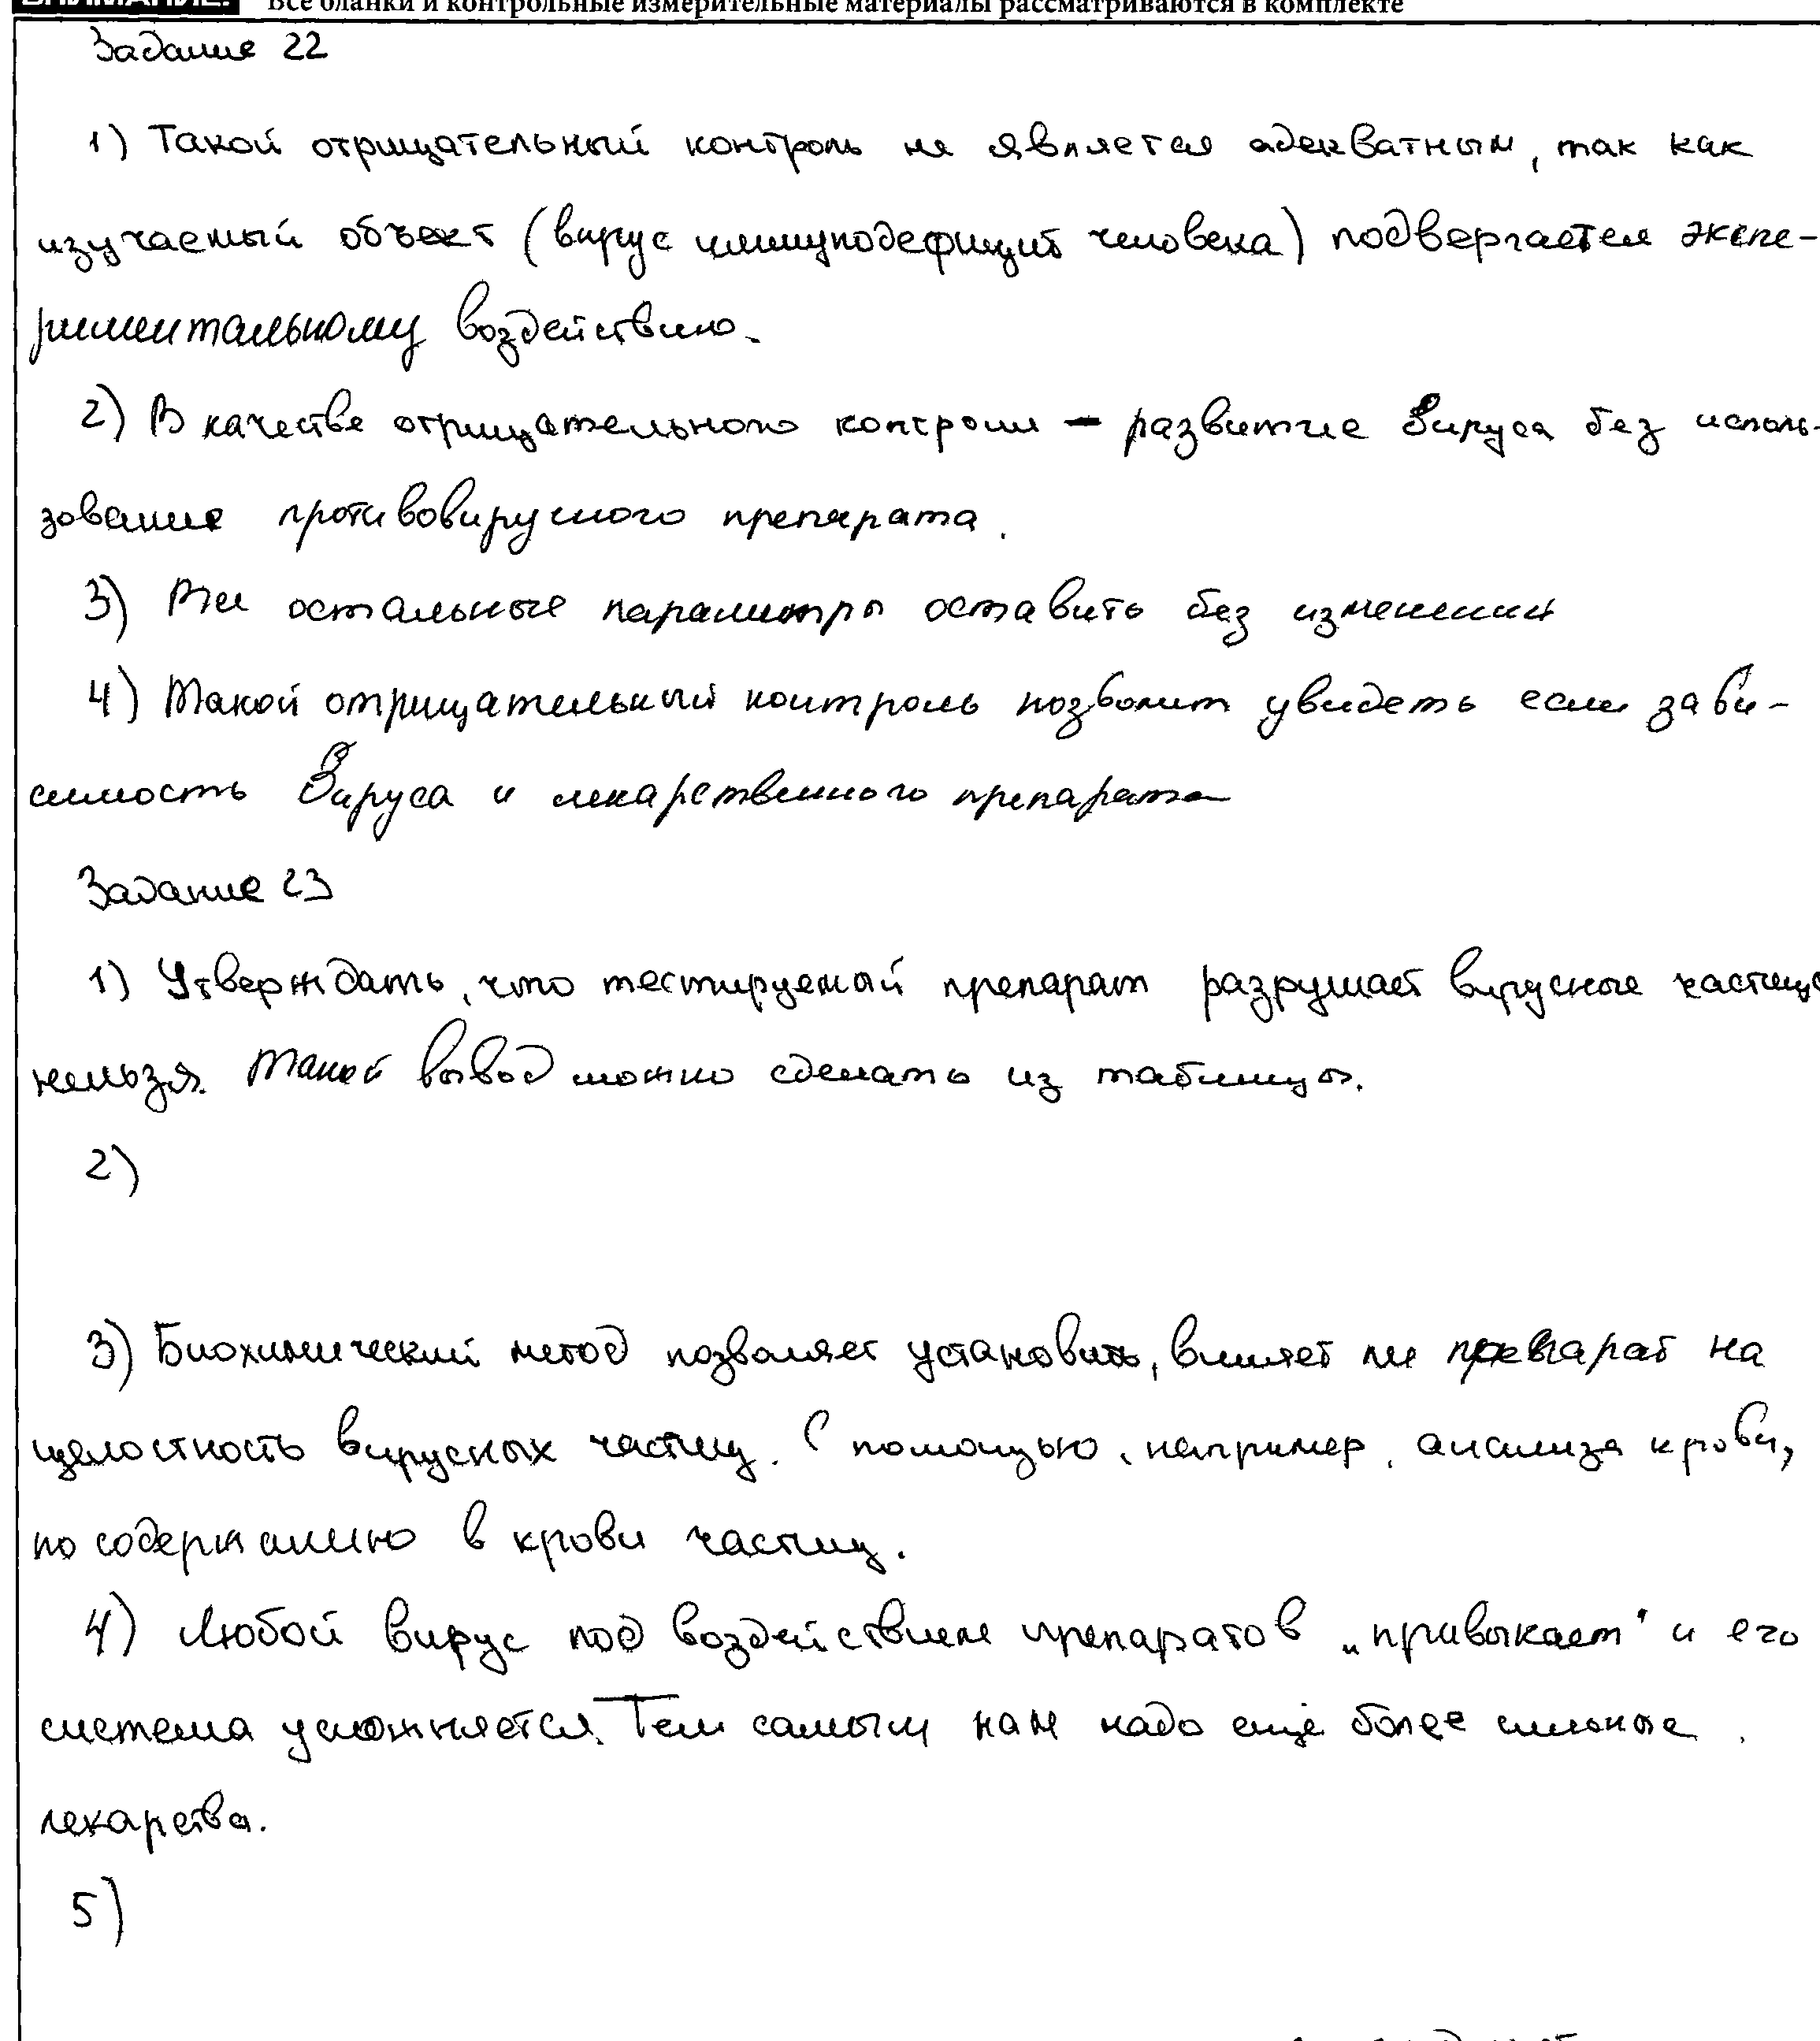 ВНИМАНИЕ! Все бланки и контрольные измерительные материалы рассматриваются в комплекте
Задание 22
1) Такой отрицательный контроль не является адекватным, так как
изучаемый объект (вирус иммунодефицит человека) подвергается экспе-
риментальному воздействию.
2) В качестве отрицательного контроля - развитие вируса без исполь-
зование противовирусного препарата.
3) Все остальные параметры оставить без изменений
4) Такой отрицательный контроль позволит увидеть если зави-
симость вируса и лекарственного препарата
Задание 23
1) Утверждать, что тестируемый препарат разрушает вирусные частицы
нельзя. Такой вывод можно сделать из таблицы.
2)
3) Биохимический метод позволяет установить, влияет ли препарат на
целостность вирусных частиц. С помощью, например, анализа крови,
по содержанию в крови частиц.
4) Любой вирус под воздействием препаратов "привыкает" и его
система усложняется. Тем самым нам надо ещё более сильные
лекарства.
5)